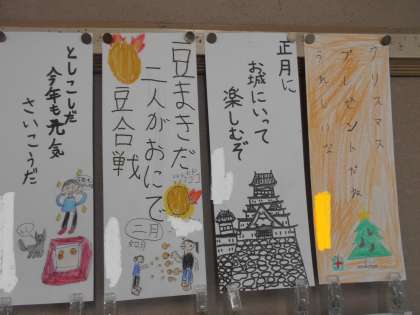 としこしだ
今年も元気
さいこうだ
豆まきだ
二人がおにで
豆合戦
二月
正月に
お城にいって
楽しむぞ
クリスマス
プレゼントだね
うれしいな